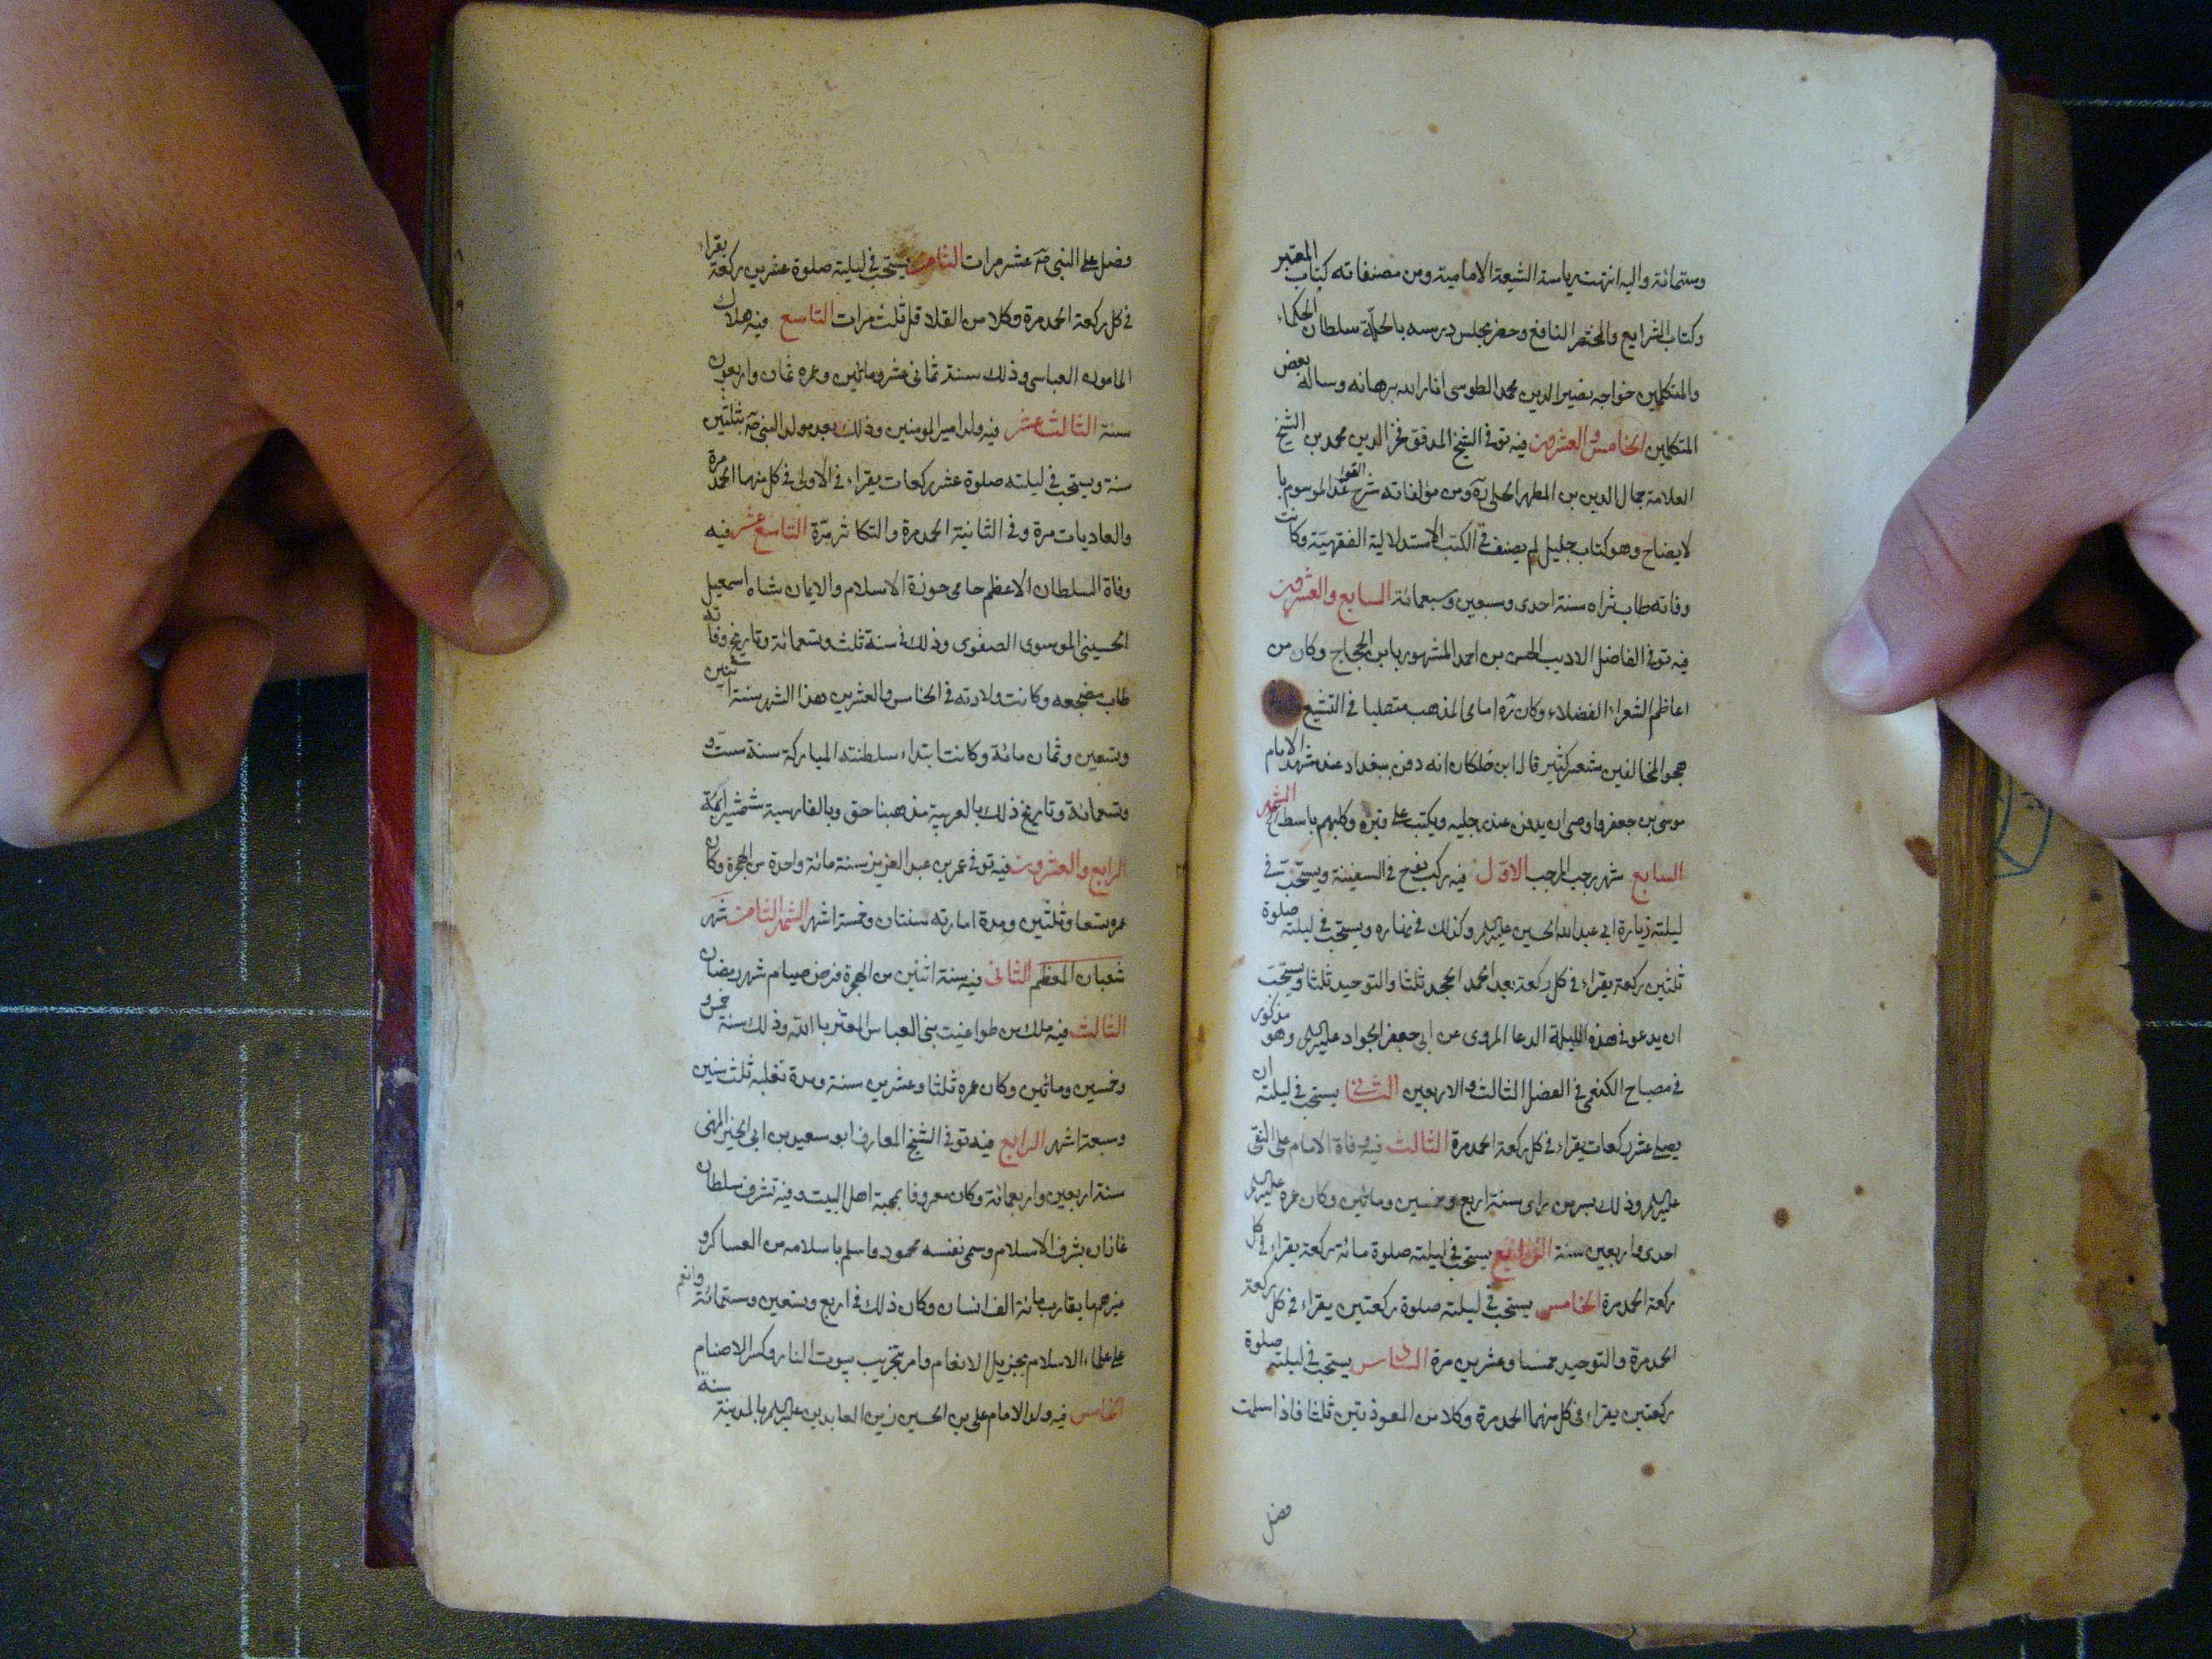 وستمائة واليه انتهت رياسة الشيعة الامامية ومن مصنفاته كتاب المعتبر
وكتاب الشرايع والمختصر النافع وحضر مجلس درسه بالحلة سلطان الحكماء
والمتكلمين خواجه نصير الدين محمد الطوسى انار الله برهانه وساله بعض
المتكلمين الخامس والعشرون فيه توفى الشيخ المدقق فخر الدين محمد بن الشيخ
العلامة جمال الدين بن المطهر الحلى ره ومن مولفاته شرح القواعد الموسوم با
لايضاح وهو كتاب جليل لم يصنف فى الكتب الاستدلالية الفقهية وكانت
وفاته طاب ثراه سنة احدى وسبعين وسبعمائة السابع والعشرون
فيه توفى الفاضل الاديب الحسن بن احمد المشهور بابن الحجاج وكان من
اعاظم الشعراء الفضلاء وكان ره امامى المذهب متصلبا فى التشيع
هجو المخالفين بشعر كثير قال ابن خلكان انه دفن ببغداد عند مشهد الامام
موسى بن جعفر واوصى ان يدفن عند رجليه ويكتب على قبره وكلبهم باسط الشهر
السابع شهر رجب المرجب الاول فيه ركب نوح فى السفينة ويستحب فى
ليلته زيارة ابى عبد الله الحسين عليه السلام وكذلك فى نهاره ويستحب فى ليلته صلوة
ثلثين ركعة يقراء فى كل ركعة بعد الحمد الجحد ثلثا والتوحيد ثلثا ويستحب
ان يدعو فى هذه الليلة الدعا المروى عن ابى جعفر الجواد عليه السلام وهو مذكور
فى مصباح الكفعمى فى الفصل الثالث والاربعين الثانى يستحب فى ليلته ان
يصلى عشر ركعات يقراء فى كل ركعة الحمد مرة الثالث فيه وفاة الامام على النقى
عليه السلام وذلك بسر من راى سنة اربع وخمسين وماتين وكان عمره عليه السلام
احدى واربعين سنة الرابع يستحب فى ليلته صلوة مائة ركعة يقراء فى كل
ركعة الحمد مرة الخامس يستحب فى ليلته صلوة ركعتين يقراء فى كل ركعة
الحمد مرة والتوحيد خمسا وعشرين مرة السادس يستحب فى ليلته صلوة
ركعتين يقراء فى كل منهما الحمد مرة وكلا من المعوذتين ثلثا فاذا سلمت
فصل
فصل على النبى ص عشر مرات الثامن يستحب فى ليلته صلوة عشرين ركعة يقراء
فى كل ركعة الحمد مرة وكلا من القلاقل ثلث مرات التاسع فيه هلاك
المامون العباسى وذلك سنة ثمانى عشر وماتين وعمره ثمان واربعون
سنة الثالث عشر فيه ولد امير المومنين وذلك بعد مولد النبى ص بثلثين
سنة ويستحب فى ليلته صلوة عشر ركعات يقراء فى الاولى فى كل منهما الحمد مرة
والعاديات مرة وفى الثانية الحمد مرة والتكاثر مرة التاسع عشر فيه
وفاة السلطان الاعظم حامى حوزة الاسلام والايمان شاه اسمعيل
الحسينى الموسوى الصفوى وذلك فى سنة ثلث وتسعمائة وتاريخ وفاته
طاب مضجعه وكانت ولادته فى الخامس والعشرين هذا الشهر سنة اثنين
وتسعين وثمان مائة وكانت ابتداء سلطنته المباركة سنة ست و
وتسعمائة وتاريخ ذلك بالعربية مذهبنا حق وبالفارسية شمشير ائمة
الرابع والعشرون فيه توفى عمر بن عبد العزيز سنة مائة واحدة من الهجرة وكان
عمره تسعا وثلثين ومدة امارته سنتان وخمسة اشهر الشهر الثامن شهر
شعبان المعظم الثانى فيه سنة اثنين من الهجرة فرض صيام شهر رمضان
الثالث فيه ملك من طواغيت بنى العباس المعتز بالله وذلك سنة خمس و
وخمسين وماتين وكان عمره ثلثا وعشرين سنة ومدة تغلبه ثلث سنين
وسبعة اشهر الرابع فيه توفى الشيخ العارف ابو سعيد بن ابى الخير المهنى
سنة اربعين واربعمائة وكان معروفا بمحبة اهل البيت وفيه تشرف سلطان
غازان بشرف الاسلام وسمى نفسه محمود واسلم باسلامه من العساكر و
غيرهم ما يقارب مائة الف انسان وكان ذلك فى اربع وتسعين وستمائة وانعم
على علماء الاسلام بجزيل الانعام وامر بتخريب بيوت النار وكسر الاصنام
الخامس فيه ولد الامام على بن الحسين زين العابدين عليه السلام بالمدينة سنة